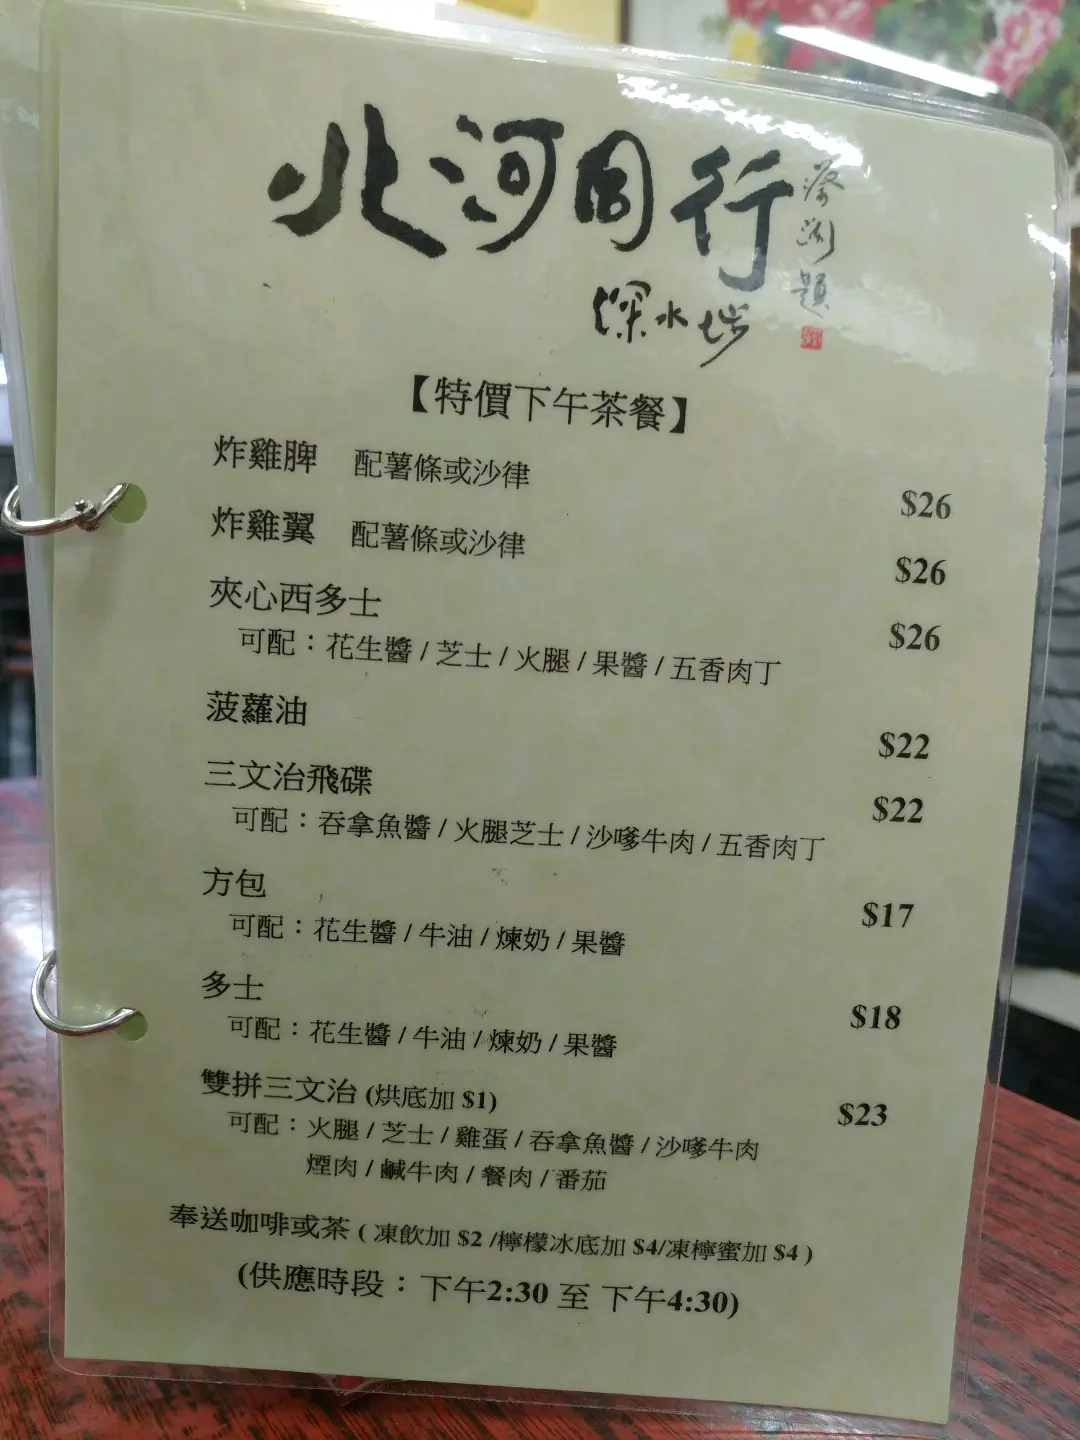 北河同行
蔡瀾題
深水埗
【特價下午茶餐】
炸雞髀 配薯條或沙律 $26
炸雞翼 配薯條或沙律 $26
夾心西多士 $26
可配：花生醬 / 芝士 / 火腿 / 果醬 / 五香肉丁
菠蘿油 $22
三文治飛碟 $22
可配：吞拿魚醬 / 火腿芝士 / 沙嗲牛肉 / 五香肉丁
方包 $17
可配：花生醬 / 牛油 / 煉奶 / 果醬
多士 $18
可配：花生醬 / 牛油 / 煉奶 / 果醬
雙拼三文治 (烘底加 $1) $23
可配：火腿 / 芝士 / 雞蛋 / 吞拿魚醬 / 沙嗲牛肉
煙肉 / 鹹牛肉 / 餐肉 / 番茄
奉送咖啡或茶 ( 凍飲加 $2 /檸檬冰底加 $4/凍檸蜜加 $4 )
(供應時段：下午2:30 至 下午4:30)